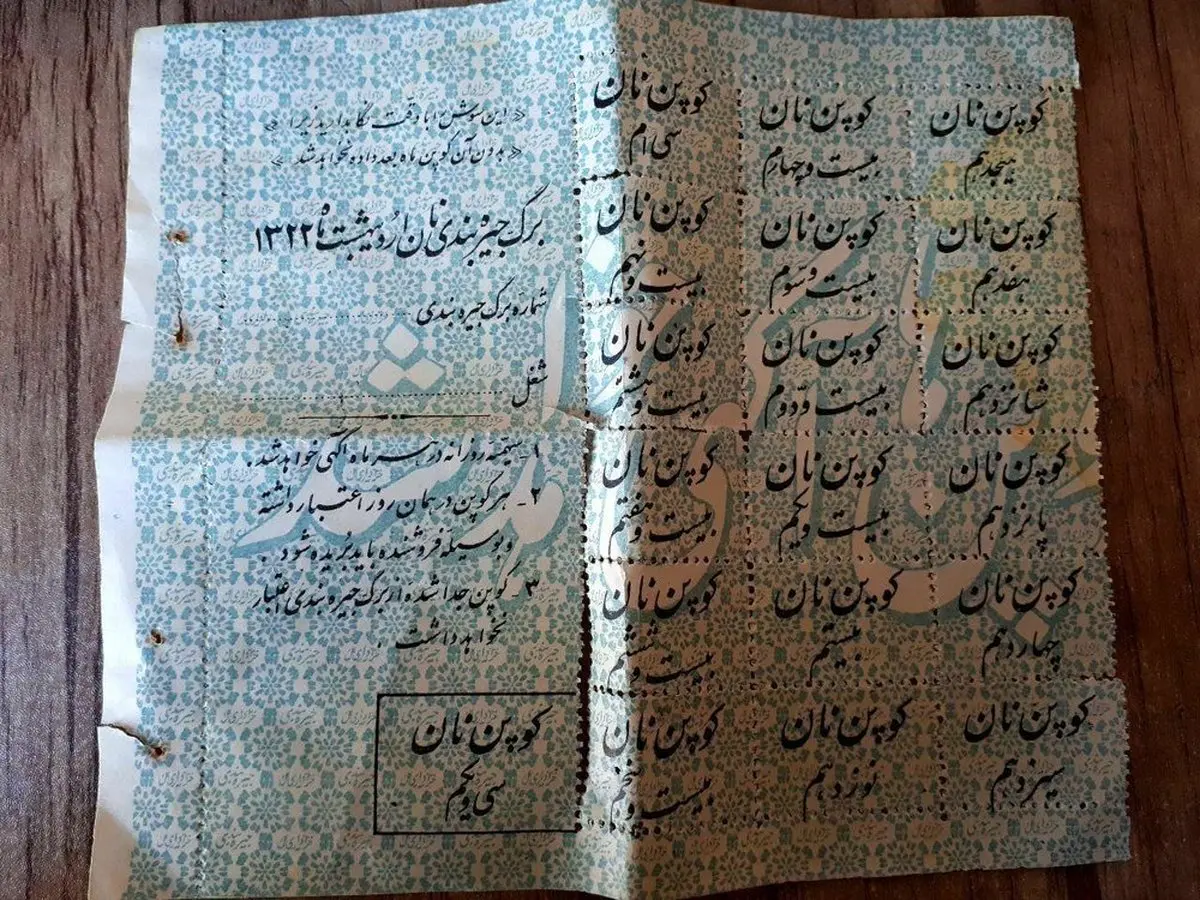 « این سوش را با دقت نگاهدارید زیرا »
« بدون آن کوپن ماه بعد داده نخواهد شد »
برگ جیره بندی نان اردیبهشت ماه ۱۳۲۲
شماره برگ جیره بندی
شغل
۱- سهمیه روزانه در هر ماه آگهی خواهد شد.
۲- هر کوپن در همان روز اعتبار داشته
و بوسیله فروشنده باید بریده شود.
۳- کوپن جدا شده از برگ جیره بندی اعتبار
نخواهد داشت.
کوپن نان
سی و یکم
کوپن نان
هیجدهم
کوپن نان
بیست و چهارم
کوپن نان
سی ام
کوپن نان
هفدهم
کوپن نان
بیست و سوم
کوپن نان
بیست و نهم
کوپن نان
شانزدهم
کوپن نان
بیست و دوم
کوپن نان
بیست و هشتم
کوپن نان
پانزدهم
کوپن نان
بیست و یکم
کوپن نان
بیست و هفتم
کوپن نان
چهاردهم
کوپن نان
بیستم
کوپن نان
بیست و ششم
کوپن نان
سیزدهم
کوپن نان
نوزدهم
کوپن نان
بیست و پنجم